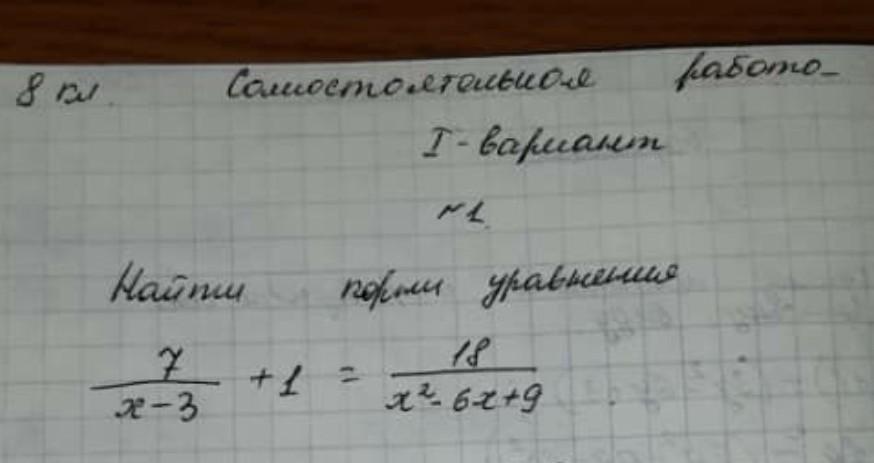 8 кл. Самостоятельная работа
I-вариант
№1.
Найти корни уравнения
7/(x-3) + 1 = 18/(x²-6x+9)